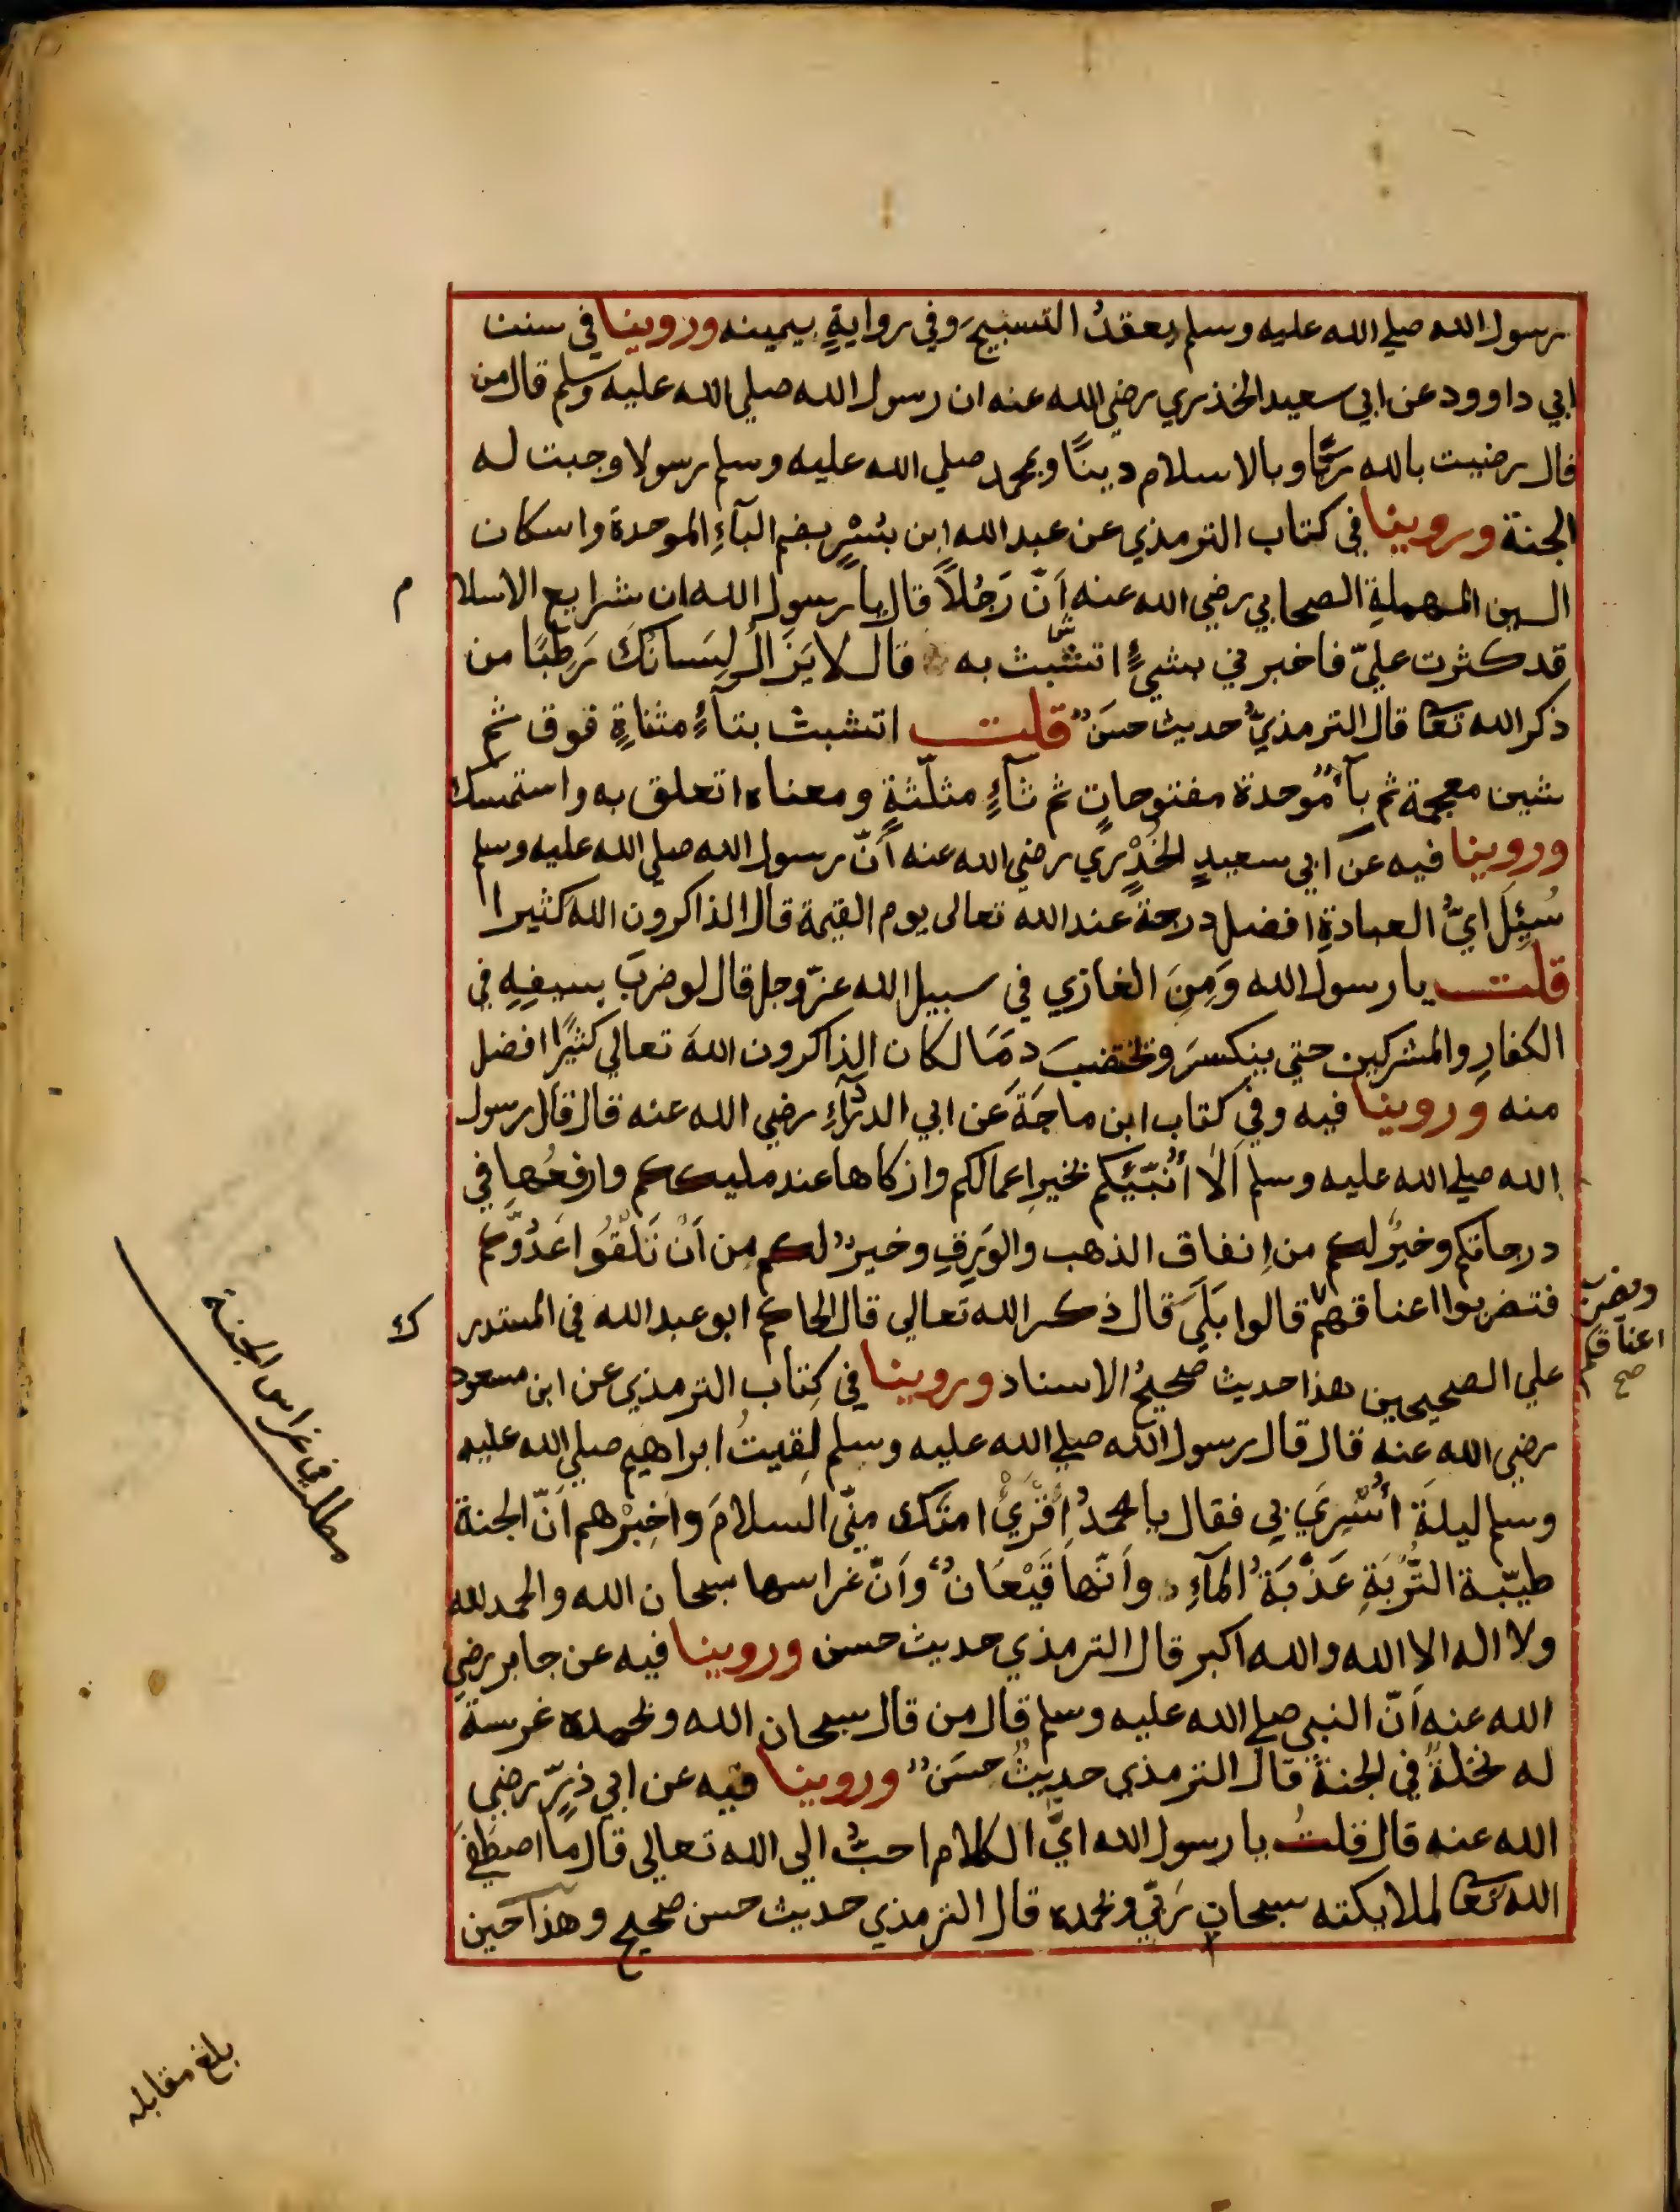 رسول الله صلي الله عليه وسلم يعقدُ التسبيحَ وفي روايةٍ بيمينه وروينا في سنن
ابي داوود عن ابي سعيد الخذري رضي الله عنه ان رسول الله صلي الله عليه وسلم قال من
قال رضيت بالله ربًّا وبالاسلام دينًا وبمحمد صلي الله عليه وسلم رسولا وجبت له
الجنة وروينا في كتاب الترمذي عن عبد الله ابن بُسْرٍ بضم البآءِ الموحدة واسكان
السين المهملةِ الصحابي رضي الله عنه اَنّ رَجُلاً قال يا رسول الله ان شرايع الاسلا م
قد كثرت عليّ فاخبرني بشيءٍ اتشبّث به قال لا يَزَالُ لِسَانُكَ رَطْبًا من
ذكر الله تعا قال الترمذيُّ حديث حسَنٌ قلت اتشبث بتآءٍ مثناةٍ فوق ثم
شين معجمة ثم بآءٌ مُوحدة مفتوحاتٍ ثم ثآءٍ مثلّثةٍ ومعناه اتعلق به واستمسك
وروينا فيه عن ابي سعيدٍ الخُدْرِي رضي الله عنه أَنّ رسول الله صلي الله عليه وسلم
سُئِلَ ايُّ العبادةِ افضل درجة عند الله تعالى يوم القيمة قال الذاكرون الله كثيرا
قلت يا رسول الله وَمِنَ الغازي في سبيل الله عزّ وجل قال لو ضربَ بسيفِهِ في
الكفارِ والمشركين حتي ينكسرَ وتختضبَ دمًا لكان الذاكرون اللهَ تعالي كثيًرا افضل
منه وروينا فيه وفي كتاب ابن ماجَةَ عن ابي الدرْدآءِ رضي الله عنه قال قال رسول
الله صلي الله عليه وسلم اَلاَ أُنَبِّئكم بخيرِ اعمالكم وازكاها عند مليككم وارفعُها في
درجاتكم وخيرٌ لكم من اِنفاق الذهب والوَرِقِ وخيرٌ لكم مِن اَنْ تَلْقَوْا عَدُوَّكم
فتضربوا اعناقهم قالوا بَلَي قال ذكر الله تعالي قال الحاكم ابو عبد الله في المستدر ك
ويضربوا
اعناقكم
صح
علي الصحيحين هذا حديث صحيحُ الاسناد وروينا في كِتاب الترمذي عن ابن مسعود
رضي الله عنه قال قال رسول الله صلي الله عليه وسلم لقيتُ ابراهيم صلي الله عليه
وسلم ليلةَ اُسْرِيَ بي فقال يا محمدُ اَقْرِئْ امتك منّي السلامَ واَخبِرْهم اَنّ الجنة
طيّبة التُّرْبَةِ عَذْبَةُ المآءِ واَنّها قَيْعَانٌ وَاَنّ غراسها سبحان الله والحمد لله
ولا اله الا الله والله اكبر قال الترمذي حديث حسن وروينا فيه عن جابر رضي
الله عنه اَنّ النبي صلي الله عليه وسلم قال من قال سبحان الله وبحمده غرسة
له نخلةٌ في الجنة قال الترمذي حديثٌ حسَنٌ وروينا فيه عن ابي ذرٍّ رضي
الله عنه قال قلتُ يا رسول الله ايُّ الكلام احبُّ الى الله تعالي قال ما اصطَفَي
الله تعا لملايكته سبحان رَبّي وبحمده قال الترمذي حديث حسن صحيح وهذا حين
مطلب في غراس الجنة
بلغ مقابله